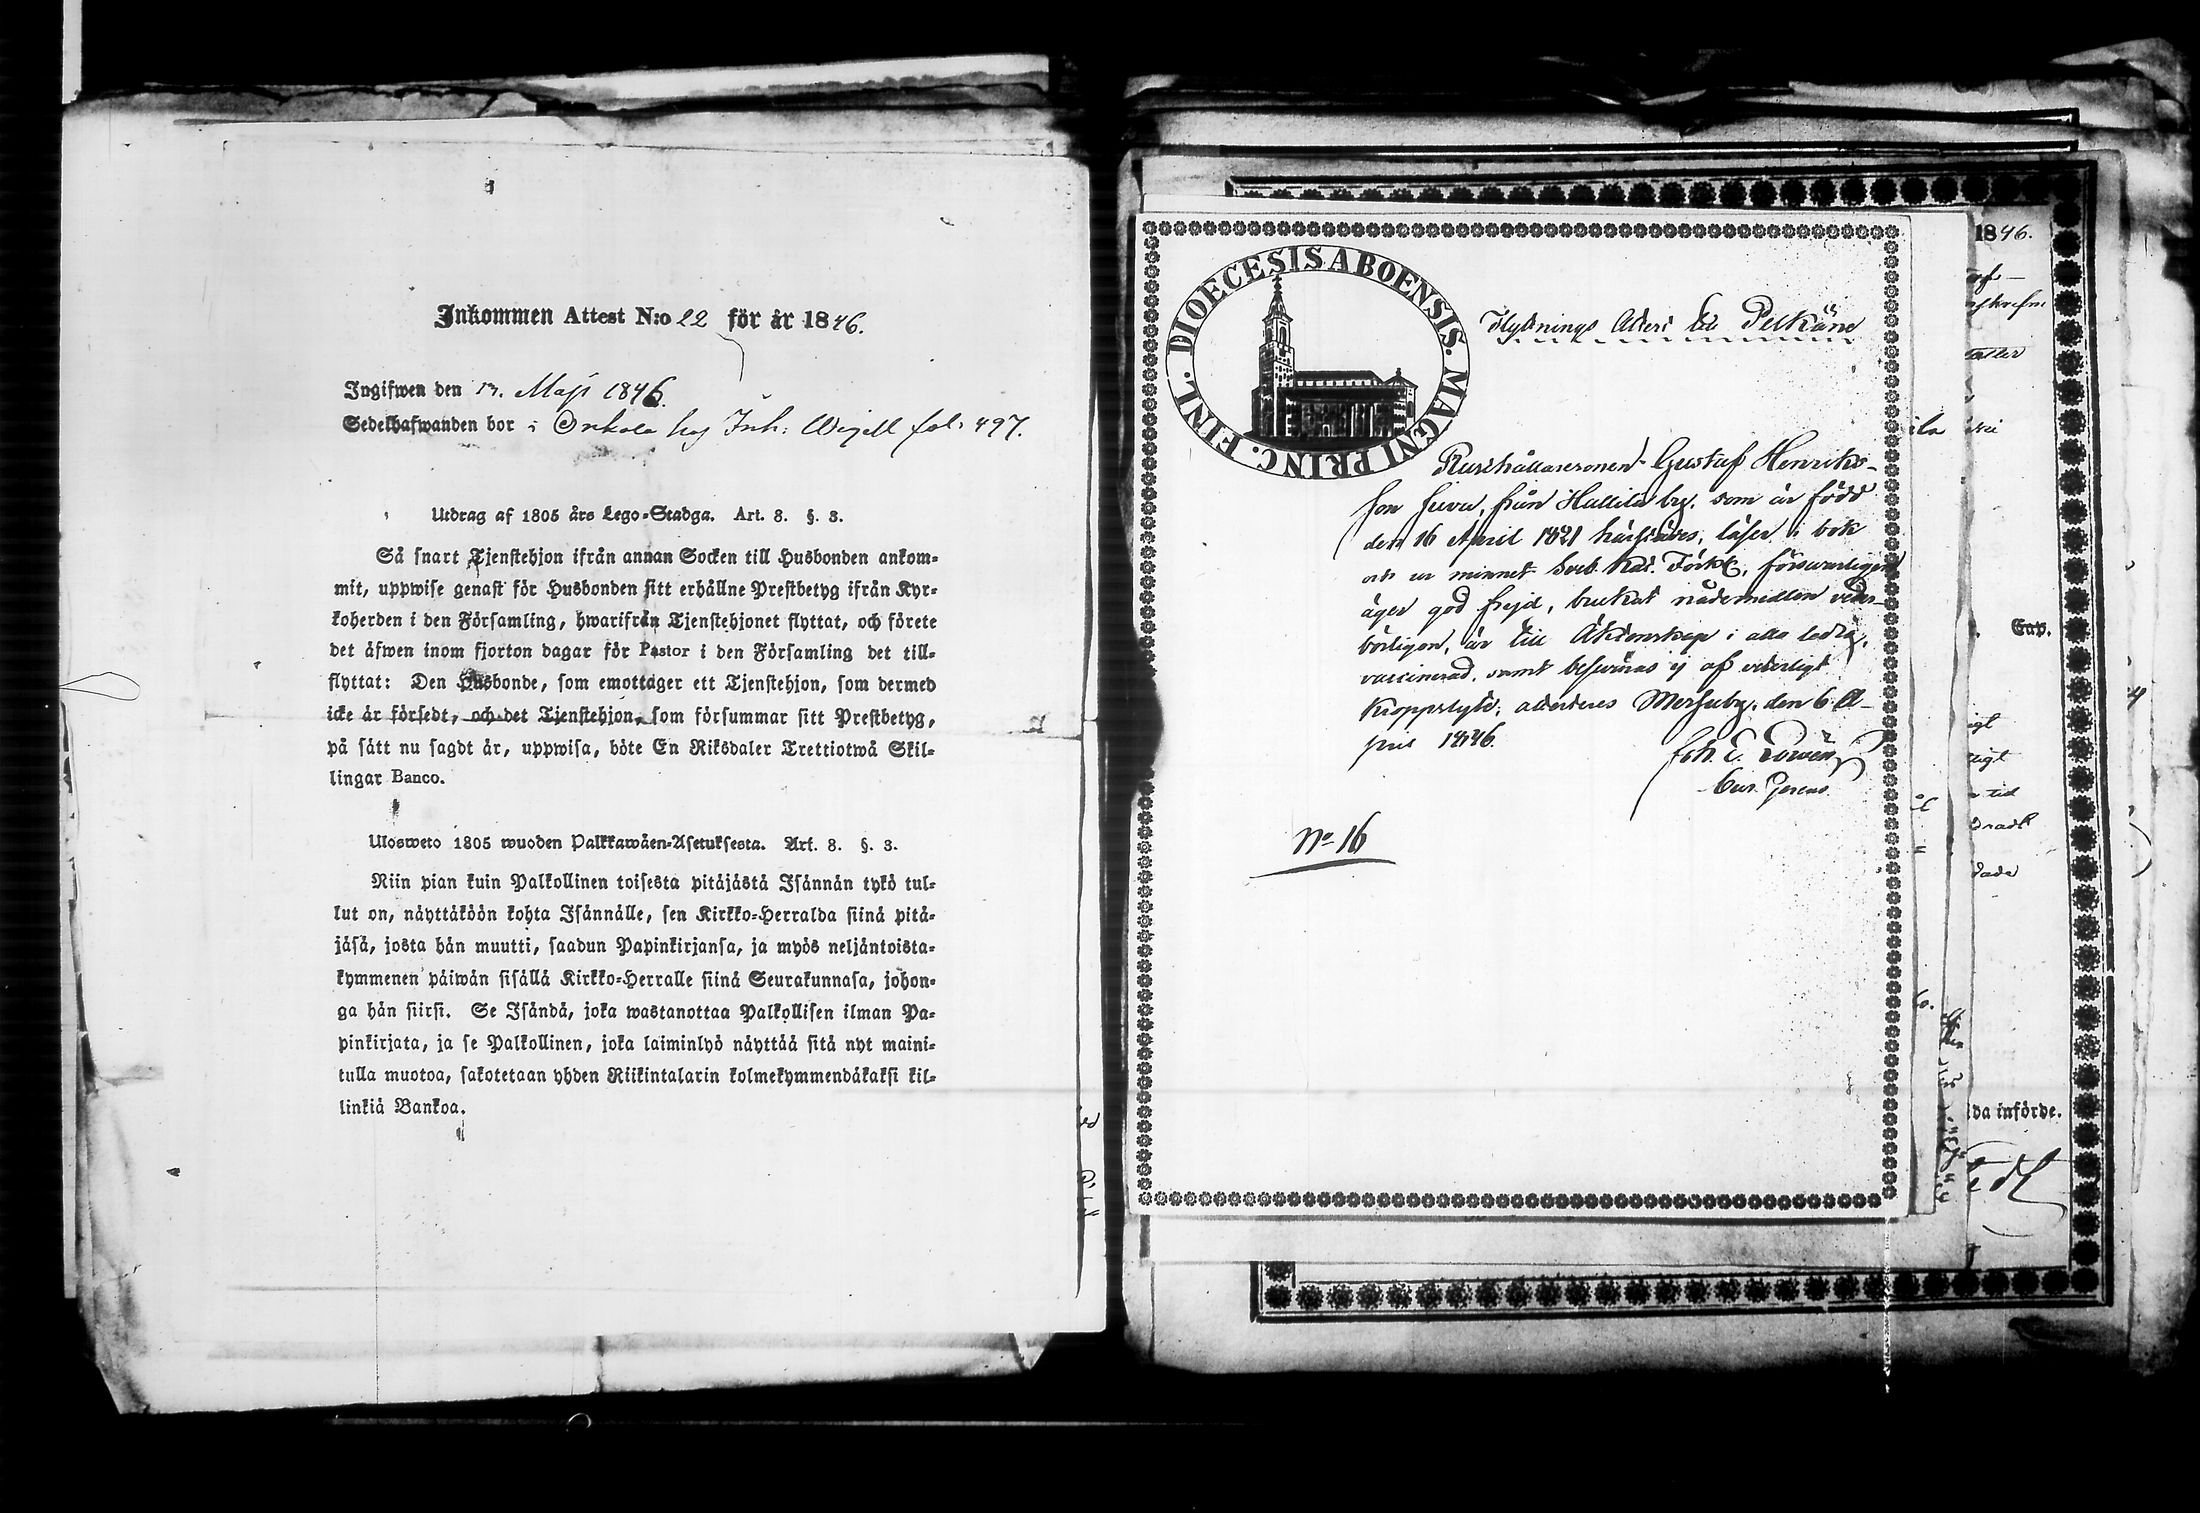 Inkommen Attest N:o 22 för år 1846.
Ingifwen den 13. Maji 1846.
Sedelhafwanden bor i Onkala hos Inh: Wigell fol. 497.
Utdrag af 1805 års Lego-Stadga. Art. 8. §. 3.
Så snart Tjenstehjon ifrån annan Socken till Husbonden ankom-
mit, uppwise genast för Husbonden sitt erhållne Prestbetyg ifrån Kyr-
koherden i den Församling, hwarifrån Tjenstehjonet flyttat, och förete
det äfwen inom fjorton dagar för Pastor i den Församling det till-
flyttat: Den Husbonde, som emottager ett Tjenstehjon, som dermed
icke är försedt, och det Tjenstehjon, som försummar sitt Prestbetyg,
på sätt nu sagdt är, uppwisa, böte En Riksdaler Trettiotwå Skil-
lingar Banco.
Ulosweto 1805 wuoden Palkkawäen-Asetuksesta. Art. 8. §. 3.
Niin pian kuin Palkollinen toisesta pitäjästä Isännän tykö tul-
lut on, näyttäköön kohta Isännälle, sen Kirkko-Herralda siinä pitä-
jäsä, josta hän muutti, saadun Papinkirjansa, ja myös neljäntoista-
kymmenen päiwän sisällä Kirkko-Herralle siinä Seurakunnasa, johon-
ga hän siirsi. Se Isändä, joka wastanottaa Palkollisen ilman Pa-
pinkirjata, ja se Palkollinen, joka laiminlyö näyttää sitä nyt maini-
tulla muotoa, sakotetaan yhden Riikintalarin kolmekymmendäkaksi kil-
linkiä Bankoa.
DIOECESIS ABOENSIS. MAGNI PRINC. FINL.
Flyttnings Attest till Pelkäne
Rusthållaresonen Gustaf Henriks-
son från Hallila by, som är född
den 16 April 1821 härstädes, läser i bok
och ur minnet Sveb. Kat. Förkl. försvarligen
äger god frejd, brukat nådemedlen veder-
börligen, är till Äktenskap i alla
vaccinerad, samt besväras ej af vederligt
kroppslyte; attesteres den 6 A-
pril 1846.
Joh. E.
Cur. Gerens.
No 16
1846.
Gap.
da införde.